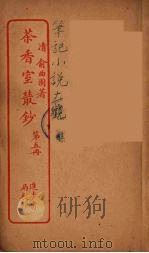 筆記小説大觀
清俞曲園著
茶香室叢鈔
第五冊
進步